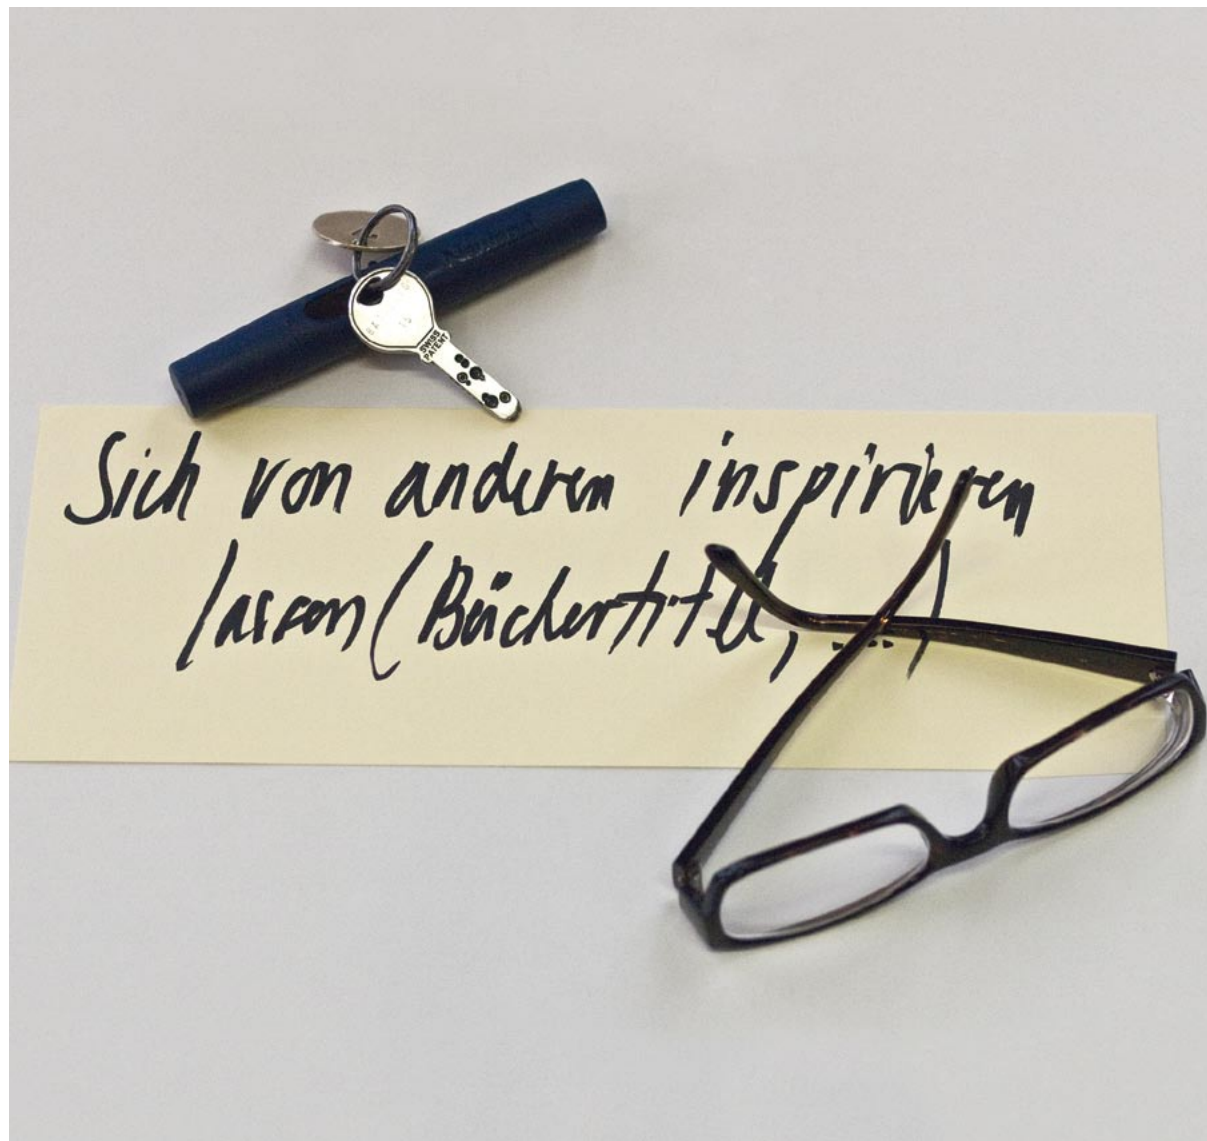 SWISS
PATENT
Sich von anderen inspirieren
lassen (Büchertitel, ...)